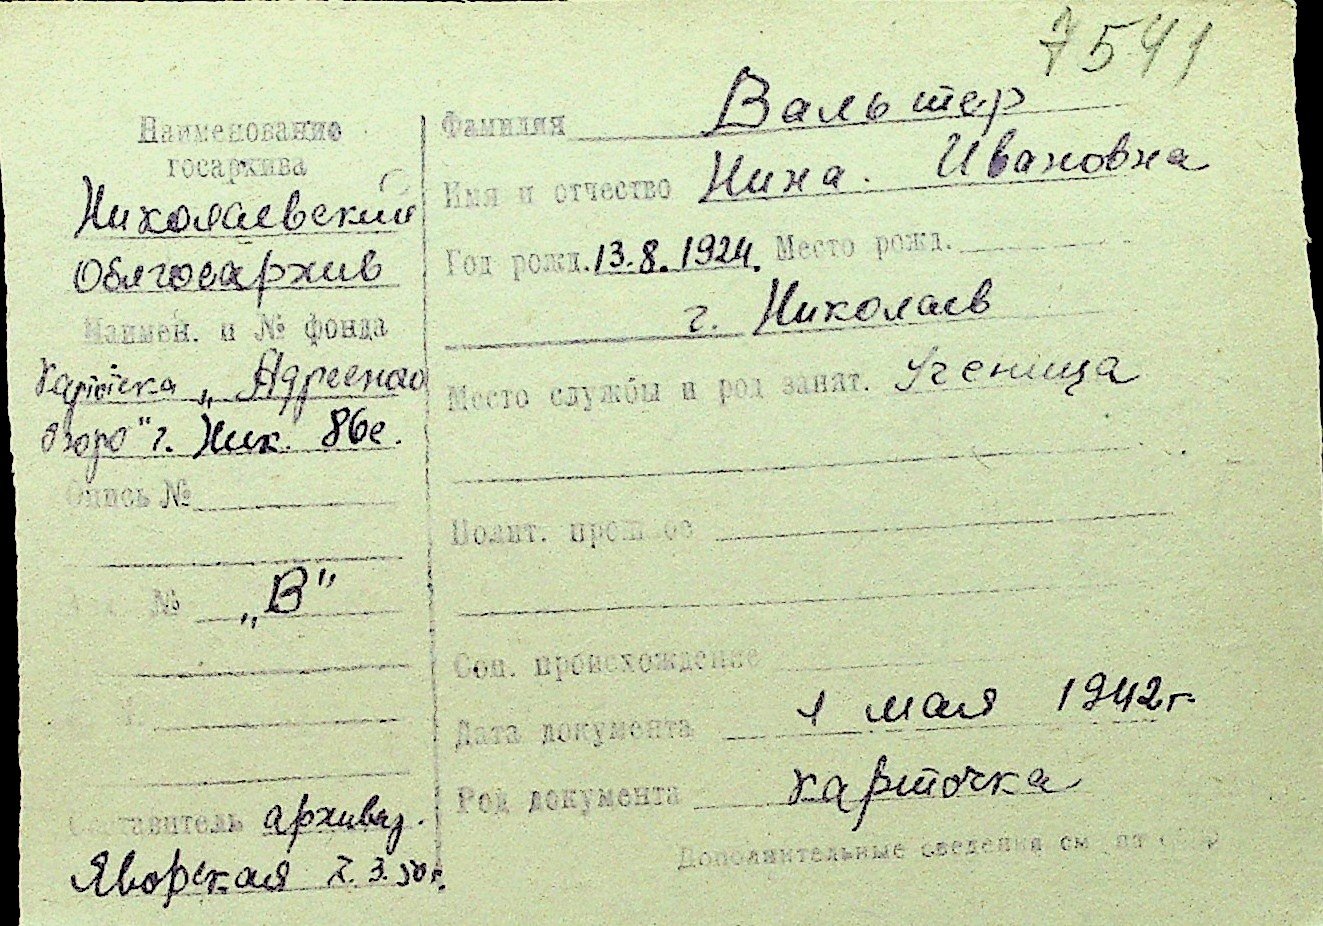 7541
Наименование
госархива
Николаевский
Облгосархив
Наимен. и № фонда
Картотека „Адресное
бюро" г. Ник.
Опись №
№ „В"
Составитель архивар.
Яворская 2.3.50г.
Фамилия Вальтер
Имя и отчество Нина. Ивановна
Год рожд. 13.8.1924. Место рожд.
г. Николаев
Место службы и род занят. Ученица
Полит. прошлое
Соц. происхождение
Дата документа 1 мая 1942г.
Род документа карточка
Дополнительные сведения см. на